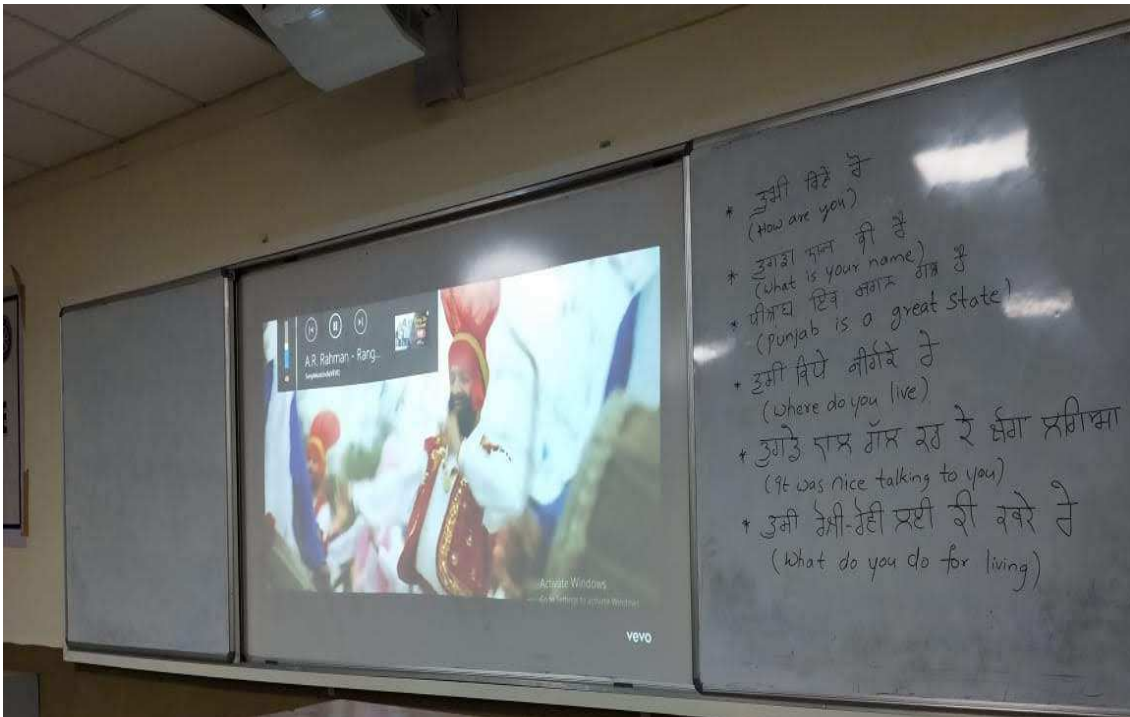 A.R. Rahman - Rang...
Activate Windows
Go to Settings to activate Windows.
vevo
* ਤੁਸੀ ਕਿਵੇਂ ਹੋ
(How are you)
* ਤੁਹਾਡਾ ਨਾਮ ਕੀ ਹੈ
(What is your name)
* ਇਕ ਹੈ
(Punjab is a great state)
* ਤੁਸੀ ਕਿਥੇ ਹੋ
(Where do you live)
* ਤੁਹਾਡੇ ਨਾਲ ਗੱਲ ਕਰ ਕੇ ਲਗਿਆ
(It was nice talking to you)
* ਤੁਸੀ ਲਈ ਕੀ ਕਰਦੇ ਹੋ
(What do you do for living)